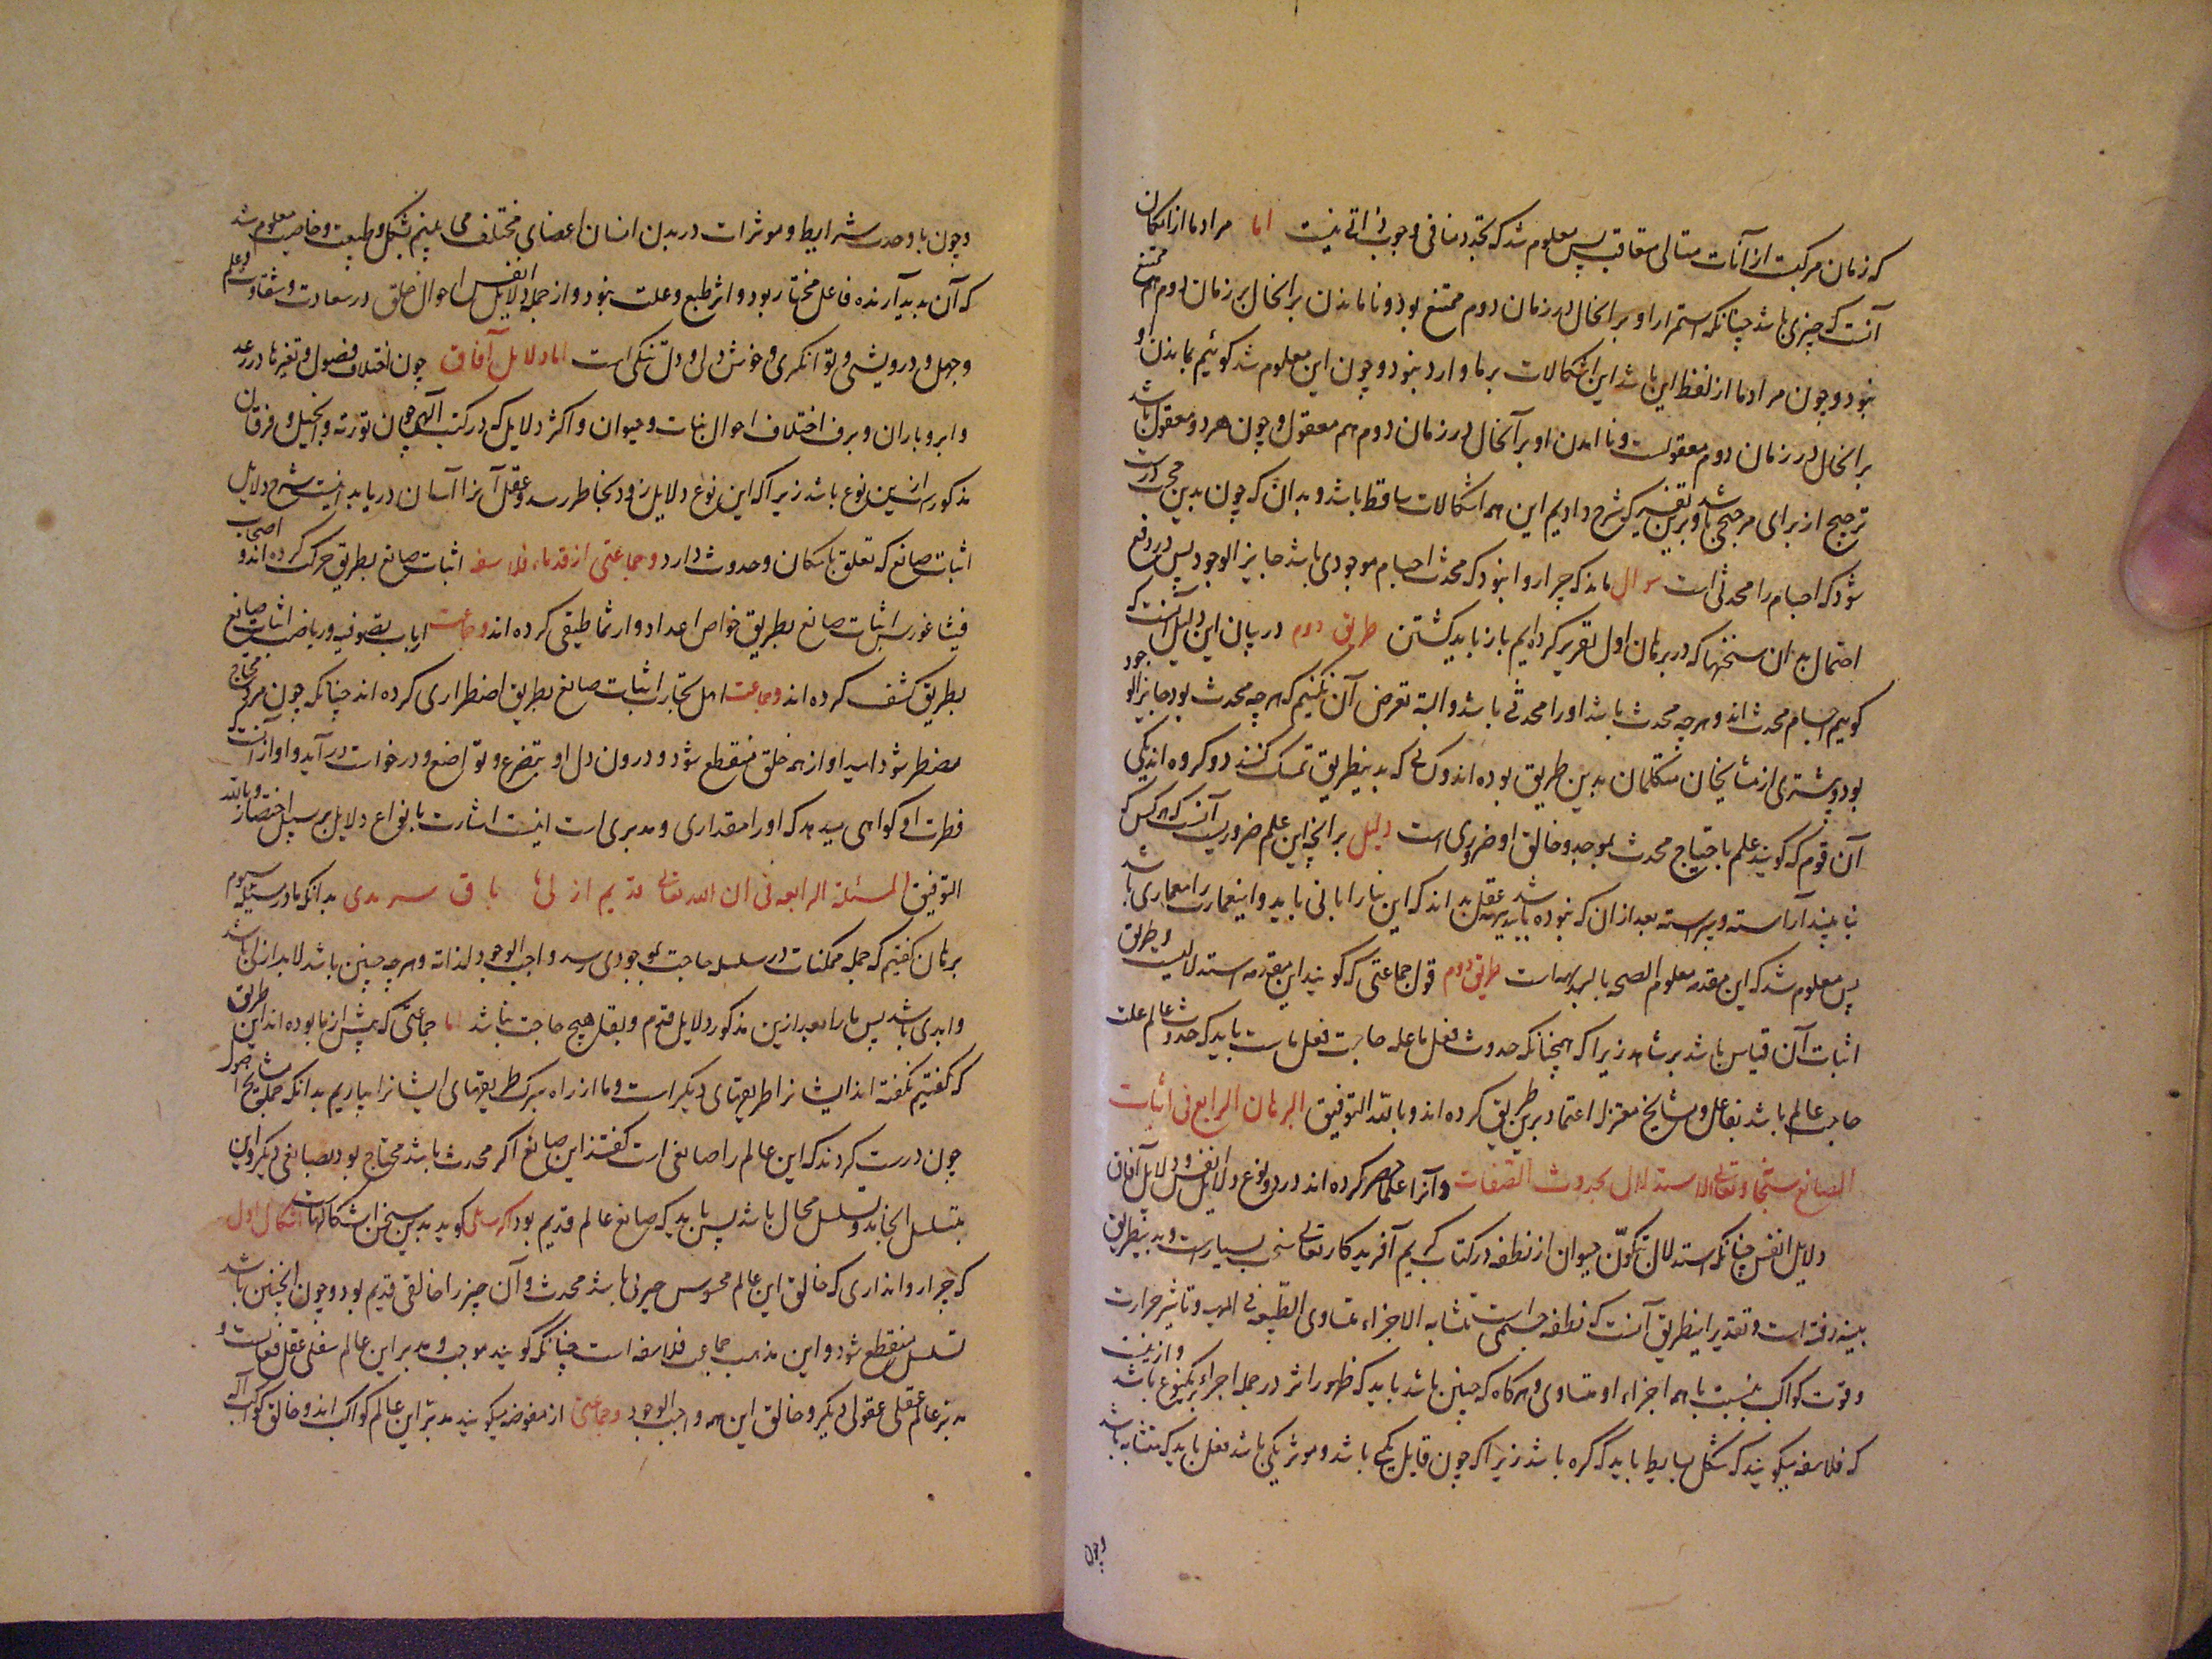 که زمان مرکبست از آنات متتالی متعاقب پس معلوم شد که تجدد منافی وجوب ذاتی نیست اما مراد ما از امکان
آنست که چیزی باشد چنانکه استمرار او بر آنحال در زمان دوم ممتنع بود و ناماندن بر آنحال بر زمان دوم هم ممتنع
نبود و چون مراد ما از لفظ این باشد این اشکالات بر ما وارد نبود و چون این معلوم شد کوئیم بماندن او
بر آنحال در زمان دوم معقولست و نامدن او بر آنحال در زمان دوم هم معقول و چون هر دو معقول باشد
ترجیح از برای مرجحی باشد و برین تفسیر که شرح دادیم این همه اشکالات ساقط باشد و بدان که چون بدین حجت درست
شود که اجسام را محدثی است سوال ماند که چرا روا نبود که محدث اجسام موجودی باشد جایز الوجود پس در دفع
احتمال بدان سخنها که در برهان اول تقریر کرده ایم باز باید کشتن طریق دوم در بیان این دلیل آنست که
کوییم اجسام محدث اند و هر چه محدث باشد او را محدثی باشد و البته تعرض آن نکنیم که هر چه محدث بود جایز الوجود
بود و بیشتری از مشایخان متکلمان بدین طریق بوده اند و کسانی که بدینطریق تمسک کنند دو کروه اند یکی
آن قوم که کویند علم باحتیاج محدث بموجد و خالق او ضروری است دلیل بر آنچه این علم ضروریست آنست که هر کس که
بنا بیند آراسته و پیراسته بعد از آن که نبوده باشد ببدیهه عقل بداند که این بنا را بانی باید و این عمارت را معماری باشد
پس معلوم شد که این مقدمه معلوم الصحه بالبدیهه است طریق دوم قول جماعتی که کویند این مقدمه استدلالیست و طریق
اثبات آن قیاس باشد بر شاهد زیرا که همچنانکه حدوث فعل ما علة حاجت فعل ماست باید که حدوث عالم علت
حاجت عالم باشد بفاعل و مشایخ معتزله اعتماد برین طریق کرده اند و بالله التوفیق البرهان الرابع فی اثبات
الصانع سبحانه و تعالی الاستدلال بحدوث الصفات و آنرا علما حصر کرده اند در دو نوع دلایل انفس و دلایل آفاق
دلایل انفس چنانکه استدلال بتکوّن حیوان از نطفه و در کتاب کریم آفریدکار تعالی سخن بسیارست و بدینطریق
بینه رفته است و تقدیر اینطریق آنست که نطفه جسمی است متشابه الاجزاء متساوی الطبیعه فی المهب و تاثیر حرارت
و قوت کواکب بنسبت با همه اجزاء او متساوی و هر کاه که چنین باشد باید که ظهور اثر در جمله اجزاء بر یکنوع باشد و ازینست
که فلاسفه میکویند که شکل بسایط باید که کره باشد زیرا که چون قابل یکی باشد و موثر یکی باشد فعل باید که متشابه باشد
و چون
و چون با وحدت شرایط و موثرات در بدن انسان اعضای مختلف می بینیم بشکل و طبیعت و خاصیت معلوم شد
که آن بدید آرنده فاعل مختار بود و اثر طبع و علت نبود و از جمله دلایل انفس احوال خلق در سعادت و شقاوت و علم
و جهل و درویشی و توانکری و خوش دلی و دل تنکی است اما دلایل آفاق چون اختلاف فصول و تغیر ما در رعد
و ابر و باران و برف و اختلاف احوال نبات و حیوان و اکثر دلایل که در کتب الهی چون توریة و انجیل و فرقان
مذکورست ازین نوع باشد زیرا که این نوع دلایل زود بخاطر رسد و عقل آنرا آسان دریابد اینست شرح دلایل
اثبات صانع که تعلق بامکان و حدوث دارد و جماعتی از قدماء فلاسفه اثبات صانع بطریق حرکت کرده اند و اصحاب
فیثاغورس اثبات صانع بطریق خواص اعداد و ارثماطیقی کرده اند و جماعت ارباب تصوف و ریاضت اثبات صانع
بطریق کشف کرده اند و جماعت اهل تجارب اثبات صانع بطریق اضطراری کرده اند چنانکه چون مردم محتاج
مضطر شود امید او از همه خلق منقطع شود و درون دل او بتضرع و تواضع و درخواست در آید و او از آنست که
فطرت او کواهی میدهد که او را مقداری و مدبری است اینست اشارت بانواع دلایل بر سبیل اختصار و بالله
التوفیق المسئلة الرابعه فی ان الله تعالی قدیم ازلی باق سرمدی بدانکه ما در مسئله سوم
برهان کفتیم که جمله ممکنات در سلسله حاجت بموجودی رسد واجب الوجود لذاته و هر چه چنین باشد لابد ازلی باشد
و ابدی باشد پس ما را بعد ازین مذکور دلایل قدم و بقا هیچ حاجت نباشد اما جماعتی که پیش از ما بوده اند این طریق
که کفتیم نکفته اند ایشان را طریقهای دیکر است و ما از راه تبرک طریقهای ایشانرا بیاریم بدانکه جمله مشایخ اصول
چون درست کردند که این عالم را صانعی است کفتند این صانع اکر محدث باشد محتاج بود بصانعی دیکر و این
بتسلسل انجامد و تسلسل محال باشد پس باید که صانع عالم قدیم بود اکر سایلی کوید بدین سخن اشکالهاست اشکال اول
که چرا روا نداری که خالق این عالم محسوس چیزی باشد محدث و آن چیز را خالقی قدیم بود و چون اینچنین باشد
تسلسل منقطع شود و این مذهب جماعت فلاسفه است چنانکه کویند موجب و مدبر این عالم سفلی عقل فعالست و
مدبر عالم عقلی عقولی دیکر و خالق این همه واجب الوجود و جماعتی از مفوضه میکویند مدبر این عالم کواکب اند و خالق کواکب اله